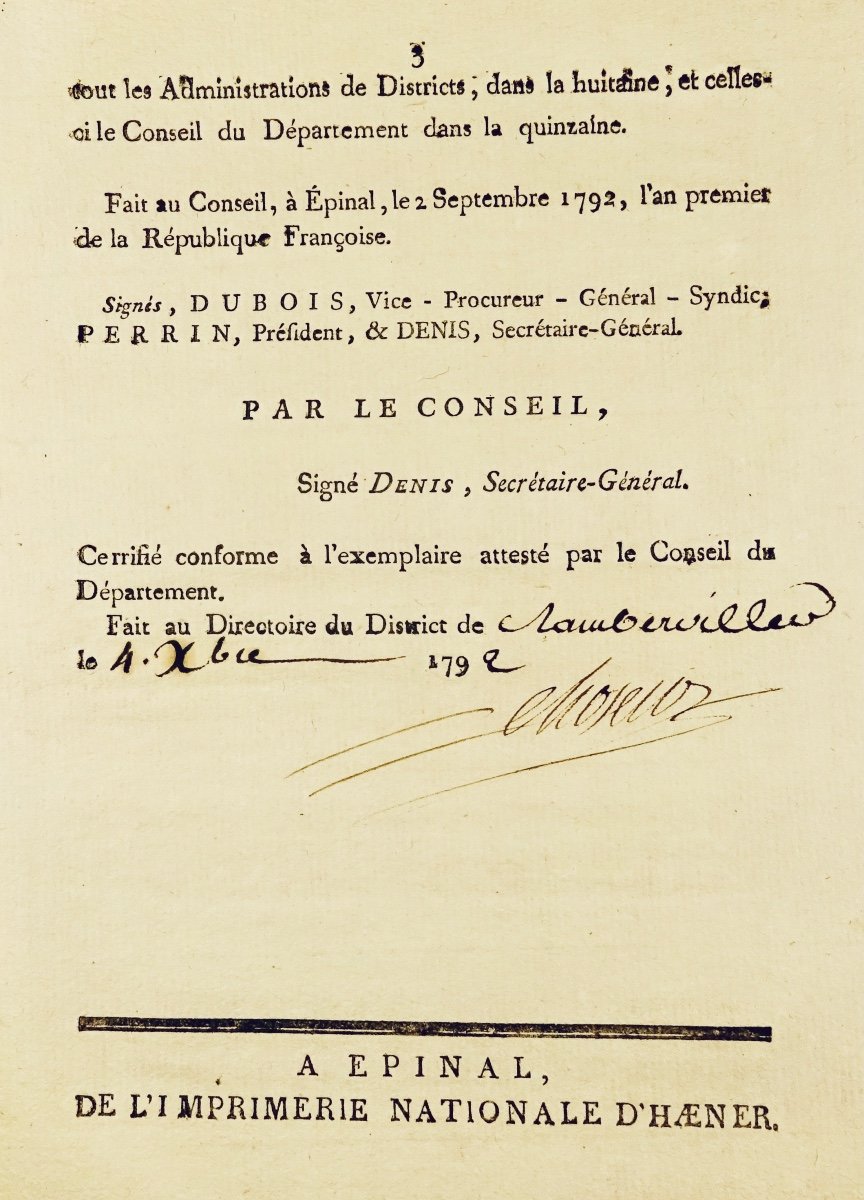 3
ront les Administrations de Districts, dans la huitaine, et celles-
ci le Conseil du Département dans la quinzaine.
Fait au Conseil, à Épinal, le 2 Septembre 1792, l'an premier
de la République Françoise.
Signés, DUBOIS, Vice-Procureur-Général-Syndic;
PERRIN, Préſident, & DENIS, Secrétaire-Général.
PAR LE CONSEIL,
Signé DENIS, Secrétaire-Général.
Cerrifié conforme à l'exemplaire attesté par le Conseil du
Département.
Fait au Directoire du District de Rambervillers
le 4. Xbre 1792
A EPINAL,
DE L'IMPRIMERIE NATIONALE D'HÆNER.